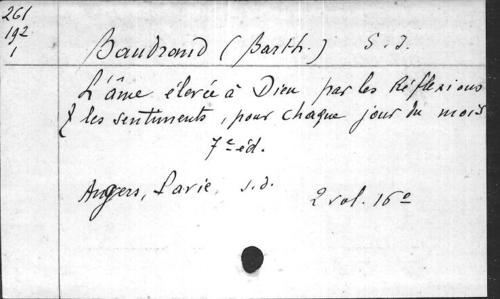 261
192
1
Baudrand (Barth.) S. J.
L'âme élevée à Dieu par les Réflexions
& les sentiments, pour chaque jour du mois
7e éd.
Angers, Pavie, s.d.
2 vol. 16°